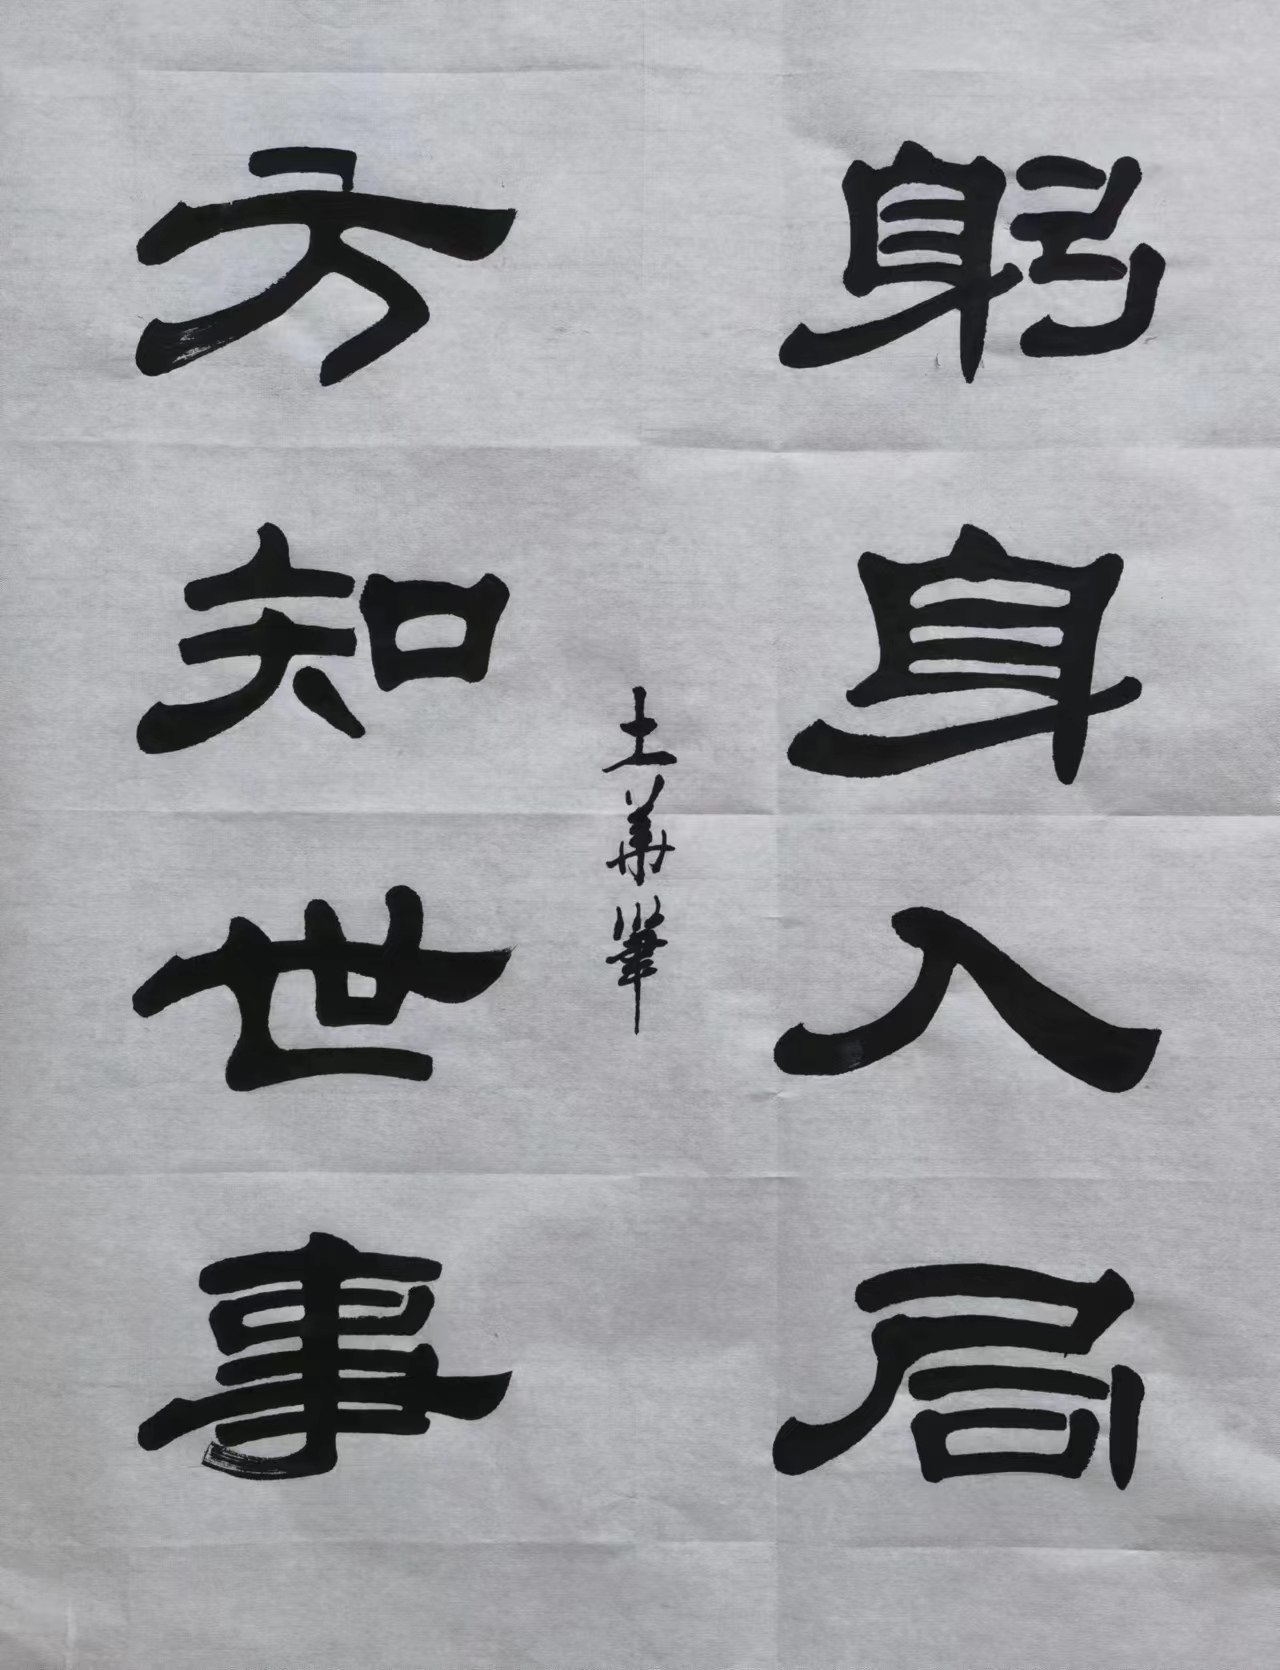 躬身入局
方知世事
士華筆